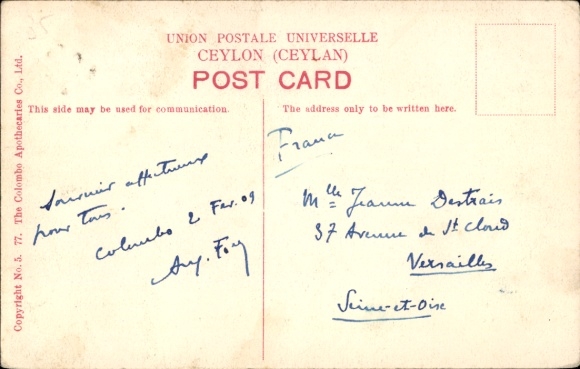 UNION POSTALE UNIVERSELLE
CEYLON (CEYLAN)
POST CARD
This side may be used for communication.
The address only to be written here.
Copyright No. 5. 77. The Colombo Apothecaries Co., Ltd.
Souvenir affectueux
pour tous.
Colombo 2 Fev. 09
Aug. Foy
France
Mlle Jeanne Destrais
37 Avenue de St Cloud
Versailles
Seine-et-Oise